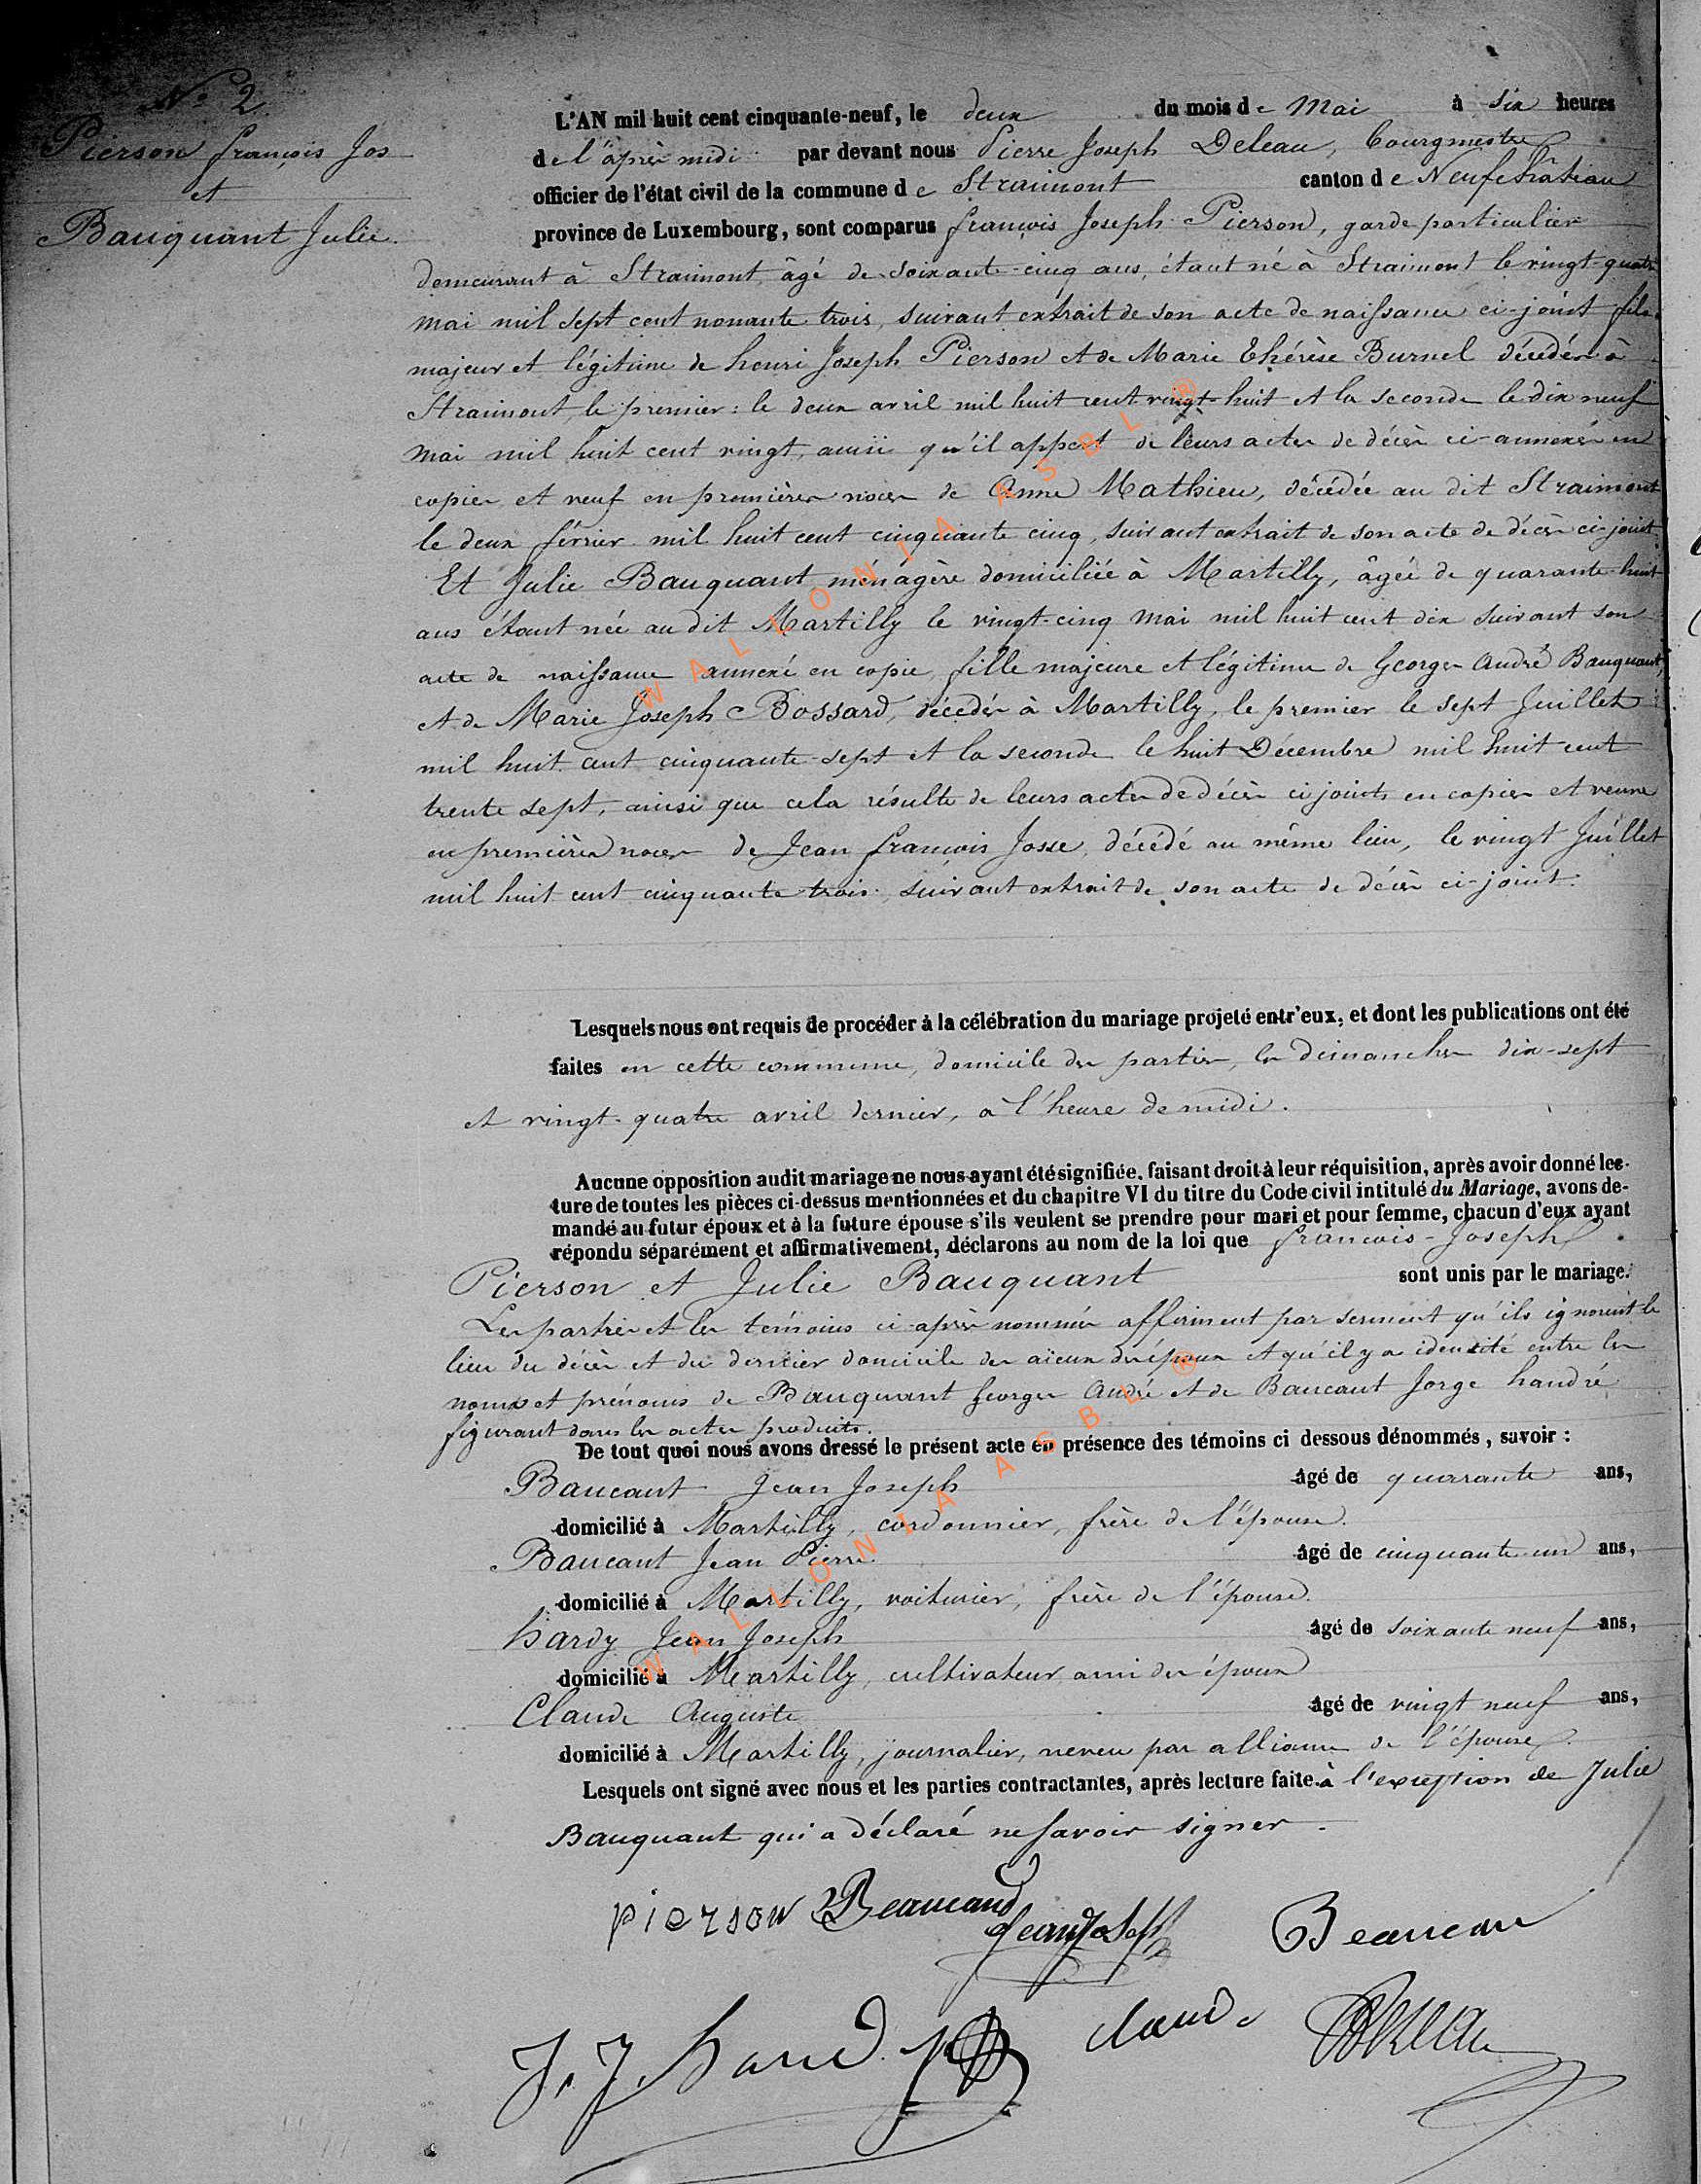 N° 2
Pierson françois Jos
et
Bauquant Julie.
L'AN mil huit cent cinquante-neuf, le deux du mois de Mai à six heures
de l'après midi par devant nous Pierre Joseph Deleau, bourgmestre
officier de l'état civil de la commune de Straimont canton de Neufchâteau
province de Luxembourg, sont comparus françois Joseph Pierson, garde particulier
demeurant à Straimont, âgé de soixante-cinq ans, étant né à Straimont le vingt-quatre
mai mil sept cent nonante trois, suivant extrait de son acte de naissance ci-joint fils
majeur et légitime de henri Joseph Pierson et de Marie Thérèse Burnel décédés à
Straimont, le premier: le deux avril mil huit cent vingt-huit et la seconde le dix neuf
mai mil huit cent vingt, ainsi qu'il appert de leurs actes de décès ci-annexés en
copies et veuf en premières noces de Anne Mathieu, décédée au dit Straimont
le deux février mil huit cent cinquante cinq, suivant extrait de son acte de décès ci-joint.
Et Julie Bauquant ménagère domiciliée à Martilly, âgée de quarante-huit
ans étant née au dit Martilly le vingt-cinq mai mil huit cent dix suivant son
acte de naissance annexé en copie, fille majeure et légitime de Georges André Bauquant,
et de Marie Joseph Bossard, décédés à Martilly, le premier le sept Juillet
mil huit cent cinquante-sept et la seconde le huit Décembre mil huit cent
trente sept, ainsi que cela résulte de leurs actes de décès ci joints en copies et veuve
en premières noces de Jean françois Josse, décédé au même lieu, le vingt Juillet
mil huit cent cinquante trois, suivant extrait de son acte de décès ci-joint.
Lesquels nous ont requis de procéder à la célébration du mariage projeté entr'eux, et dont les publications ont été
faites en cette commune, domicile des parties, les dimanches dix-sept
et vingt-quatre avril dernier, à l'heure de midi.
Aucune opposition audit mariage ne nous ayant été signifiée, faisant droit à leur réquisition, après avoir donné lec-
ture de toutes les pièces ci-dessus mentionnées et du chapitre VI du titre du Code civil intitulé du Mariage, avons de-
mandé au futur époux et à la future épouse s'ils veulent se prendre pour mari et pour femme, chacun d'eux ayant
répondu séparément et affirmativement, déclarons au nom de la loi que francois-Joseph
Pierson et Julie Bauquant sont unis par le mariage.
Les parties et les témoins ci-après nommés affirment par serment qu'ils ignorent le
lieu du décès et du dernier domicile des aïeux des époux et qu'il y a identité entre les
noms et prénoms de Bauquant Georges André et de Baucant Jorge handré
figurant dans les actes produits.
De tout quoi nous avons dressé le présent acte en présence des témoins ci dessous dénommés, savoir :
Baucant Jean Joseph âgé de quarante ans,
domicilié à Martilly, cordonnier, frère de l'épouse.
Baucant Jean Pierre âgé de cinquante-un ans,
domicilié à Martilly, voiturier, frère de l'épouse.
hardy Jean Joseph âgé de soixante neuf ans,
domicilié à Martilly, cultivateur ami des époux
Claude Auguste âgé de vingt neuf ans,
domicilié à Martilly, journalier, neveu par alliance de l'épouse.
Lesquels ont signé avec nous et les parties contractantes, après lecture faite à l'exception de Julie
Bauquant qui a déclaré ne savoir signer.
pierson Beaucand Jean Joseph Beaucan
J. J. hardy claude
WALLONIA ASBL ®
WALLONIA ASBL ®